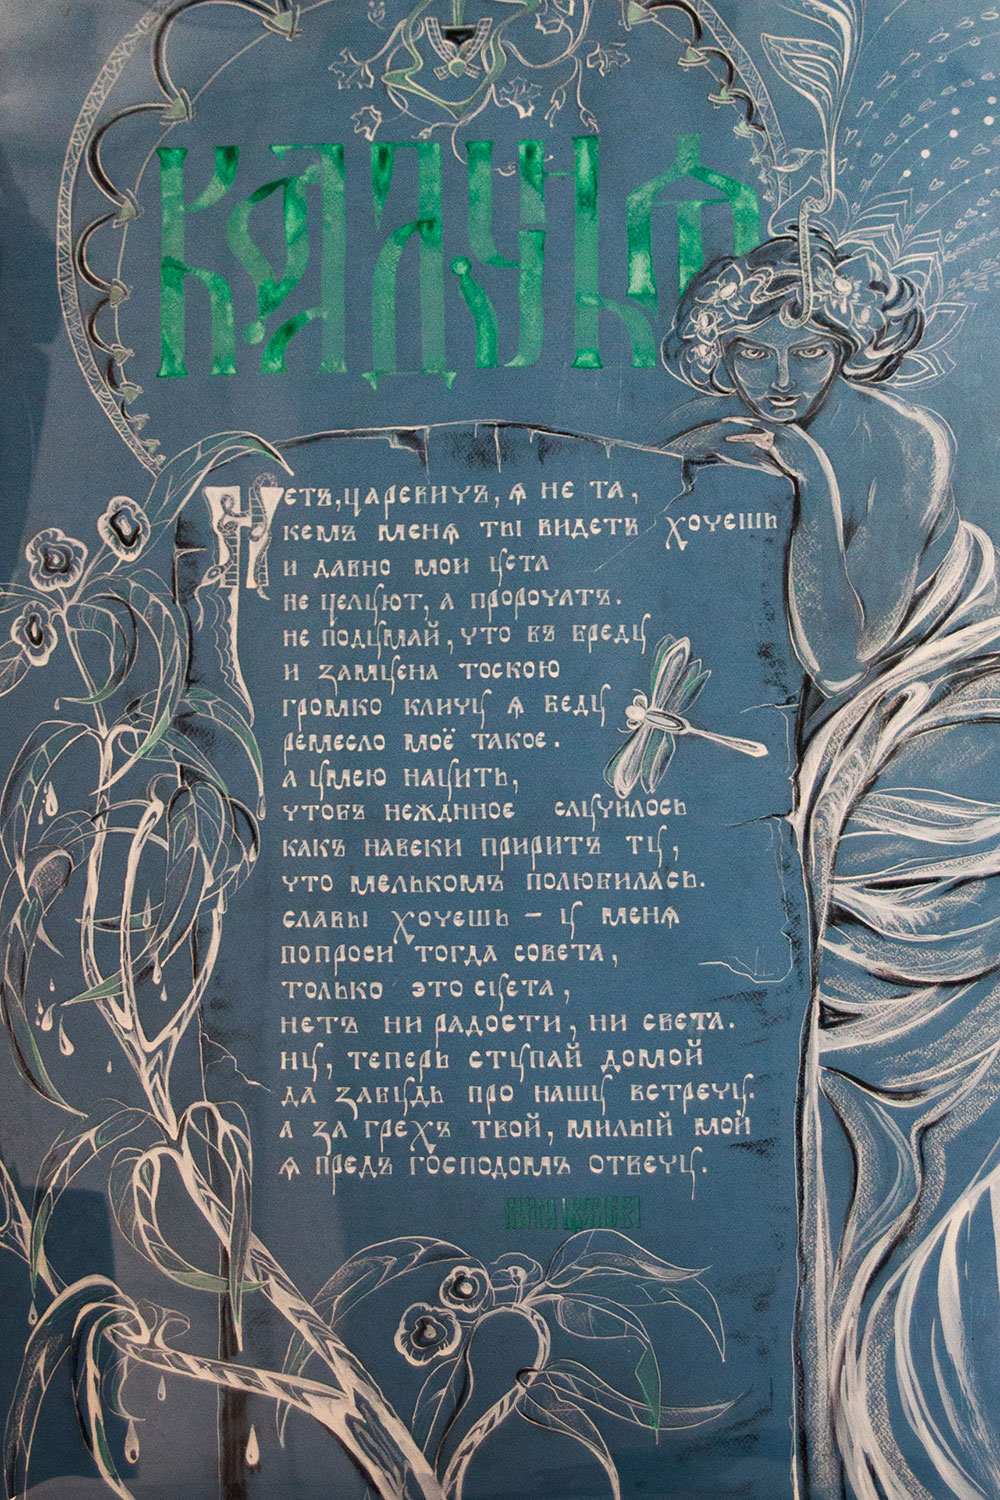 КОЛДУНЬЯ
Нетъ, царевичъ, я не та,
кемъ меня ты видеть хочешь
и давно мои уста
не целуют, а пророчатъ.
не подумай, что въ бреду
и замучена тоскою
громко кличу я беду
ремесло моё такое.
а умею научить,
чтобъ нежднное случилось
какъ навеки приритъ ту,
что мелькомъ полюбилась.
славы хочешь – у меня
попроси тогда совета,
только это суета,
нетъ ни радости, ни света.
ну, теперь ступай домой
да забудь про нашу встречу.
а за грехъ твой, милый мой
я предъ господомъ отвечу.